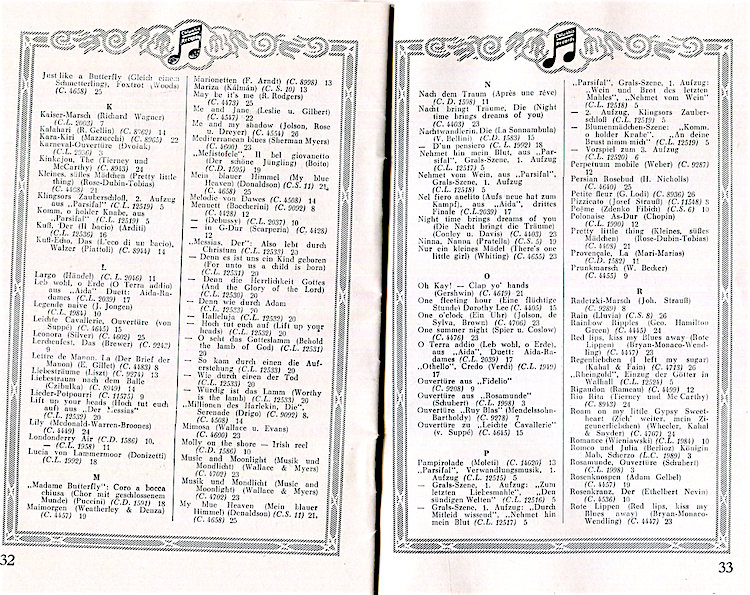 Just like a Butterfly (Gleich einem
Schmetterling), Foxtrot (Woods)
(C. 4658) 25
K
Kaiser-Marsch (Richard Wagner)
(C.L. 2003) 7
Kalahari (R. Gellin) (C. 8762) 14
Kara-Kiri (Mazzucchi) (C. 8965) 22
Karneval-Ouvertüre (Dvořák)
Kinkejon, The (Tierney und
McCarthy) (C. 8943) 24
Kleines, süßes Mädchen (Pretty little
thing) (Rose-Dubin-Tobias)
(C. 4408) 21
Klingsors Zauberschloß, 2. Aufzug
aus „Parsifal" (C.L. 12519) 5
Komm, o holder Knabe, aus
„Parsifal" (C.L. 12519) 5
Kuß, Der (Il bacio) (Arditi)
(C.L. 12536) 16
Kuß-Echo, Das (L'eco di un bacio),
Walzer (Piattoli) (C. 8944) 14
L
Largo (Händel) (C.L. 2046) 11
Leb wohl, o Erde (O Terra addio)
aus „Aida" Duett: Aida-Ra-
dames (C.L. 2039) 17
Legende naive (J. Jongen)
(C.L. 1984) 10
Leichte Cavallerie, Ouvertüre (von
Suppé) (C. 4645) 15
Leonora (Silver) (C. 4602) 25
Lerchenfest, Das (Brewer) (C. 9242)
9
Lettre de Manon, La (Der Brief der
Manon) (E. Gillet) (C. 4483) 8
Liebesträume (Liszt) (C. 9274) 13
Liebestraum nach dem Balle
(Czibulka) (C. 8949) 14
Lieder-Potpourri (C. 11575) 9
Lift up your heads (Hoch tut euch
auf) aus „Der Messias"
(C.L. 12532) 20
Lily (Mcdonald-Warren-Broones)
(C. 4449) 24
Londonderry Air (C.D. 1586) 10,
— (C.L. 1958) 11
Lucia von Lammermoor (Donizetti)
(C.L. 1992) 18
M
„Madame Butterfly": Coro a bocca
chiusa (Chor mit geschlossenem
Munde) (Puccini) (C.D. 1591) 18
Maimorgen (Weatherley & Denza)
(C. 4457) 19
Marionetten (F. Arndt) (C. 8998) 13
Mariza (Kálmán) (C. S. 10) 13
May be it's me (R. Rodgers)
(C. 4473) 25
Me and Jane (Leslie u. Gilbert)
(C. 4547) 22
Me and my shadow (Jolson, Rose
u. Dreyer) (C. 4554) 26
Mediterranean blues (Sherman Myers)
(C. 4600) 23
„Mefistofele". Il bel giovanetto
(Der schöne Jüngling) (Boito)
(C.D. 1595) 19
Mein blauer Himmel (My blue
Heaven) (Donaldson) (C.S. 11) 21,
(C. 4658) 25
Melodie von Dawes (C. 4568) 14
Menuett (Boccherini) (C. 9092) 8
(C. 4428) 12
— (Debussy) (C.L. 2037) 10
— in G-Dur (Scarperia) (C. 4428)
12
„Messias, Der": Also lebt durch
Christum (C.L. 12533) 20
— Denn es ist uns ein Kind geboren
(For unto us a child is born)
(C.L. 12531) 20
— Denn die Herrlichkeit Gottes
(And the Glory of the Lord)
(C.L. 12530) 20
— Denn wie durch Adam
(C.L. 12533) 20
— Halleluja (C.L. 12532) 20
— Hoch tut euch auf (Lift up your
heads) (C.L. 12532) 20
— O seht das Gotteslamm (Behold
the lamb of God) (C.L. 12531)
20
— So kam durch einen die Auf-
erstehung (C.L. 12533) 20
— Wie durch einen der Tod
(C.L. 12533) 20
— Würdig ist das Lamm (Worthy
is the lamb) (C.L. 12533) 20
„Millionen des Harlekin, Die",
Serenade (Drigo) (C. 9092) 8,
(C. 4569) 14
Mimosa (Wallace u. Evans)
(C. 4600) 23
Molly on the shore — Irish reel
(C.D. 1586) 10
Music and Moonlight (Musik und
Mondlicht) (Wallace & Myers)
(C. 4702) 23
Musik und Mondlicht (Music and
Moonlight) (Wallace & Myers)
(C. 4702) 23
My blue Heaven (Mein blauer
Himmel) (Donaldson) (C.S. 11) 21,
(C. 4658) 25
32
N
Nach dem Traum (Après une rêve)
(C. D. 1598) 11
Nacht bringt Träume, Die (Night
time brings dreams of you)
(C. 4403) 23
Nachtwandlerin, Die (La Sonnambula)
(V. Bellini) (C.D. 1583) 15
— D'un pensiero (C.L. 1992) 18
Nehmet hin mein Blut, aus „Par-
sifal", Grals-Szene, 1. Aufzug
(C.L. 12517) 5
Nehmet vom Wein, aus „Parsifal",
Grals-Szene, 1. Aufzug
(C.L. 12518) 5
Nel fiero anelito (Aufs neue hat zum
Kampf), aus „Aida", drittes
Finale (C.L.2039) 17
Night time brings dreams of you
(Die Nacht bringt die Träume)
(Conley u. Davis) (C. 4403) 23
Ninna, Nanna (Pratelli) (C.S. 5) 19
Nur ein kleines Mädel (There's one
little girl) (Whiting) (C. 4655) 23
O
Oh Kay! — Clap yo' hands
(Gershwin) (C. 4619) 21
One fleeting hour (Eine flüchtige
Stunde) Dorothy Lee (C. 4505) 15
One o'clock (Ein Uhr) (Jolson, de
Sylva, Brown) (C. 4706) 23
One summer night (Spier u. Coslow)
(C. 4476) 23
O Terra addio (Leb wohl, o Erde),
aus „Aida", Duett: Aida-Ra-
dames (C.L. 2039) 17
„Othello", Credo (Verdi) (C.L. 1949)
17
Ouvertüre aus „Fidelio"
(C.L. 9208) 9
Ouvertüre aus „Rosamunde"
(Schubert) (C.L. 1998) 3
Ouvertüre „Ruy Blas" (Mendelssohn-
Bartholdy) (C. 9278) 7
Ouvertüre zu „Leichte Cavallerie"
(v. Suppé) (C. 4645) 15
P
Pampirolade (Moleti) (C. 14626) 13
„Parsifal", Verwandlungsmusik, 1.
Aufzug (C.L. 12515) 5
— Grals-Szene, 1. Aufzug: „Zum
letzten Liebesmahle", „Den
sündigen Welten" (C.L. 12516) 5
— Grals-Szene, 1. Aufzug: „Durch
Mitleid wissend", „Nehmet hin
mein Blut (C.L. 12517) 5
„Parsifal", Grals-Szene, 1. Aufzug:
„Wein und Brot des letzten
Mahles", „Nehmet vom Wein"
(C.L. 12518) 5
— 2. Aufzug, Klingsors Zauber-
schloß (C.L. 12519) 5
— Blumenmädchen-Szene: „Komm,
o holder Knabe", „An deine
Brust nimm mich" (C.L. 12519) 5
— Vorspiel zum 3. Aufzug
(C.L. 12520) 6
Perpetuum mobile (Weber) (C. 9287)
12
Persian Rosebud (H. Nicholls)
(C. 4640) 25
Petite fleur (G. Lodi) (C. 8936) 26
Pizzicato (Josef Strauß) (C. 11548) 8
Poème (Zdenko Fibich) (C.S. 6) 10
Polonaise As-Dur (Chopin)
(C.L. 1990) 12
Pretty little thing (Kleines, süßes
Mädchen) (Rose-Dubin-Tobias)
(C. 4408) 21
Provençale, La (Mari-Marias)
(C.D. 1582) 11
Prunkmarsch (W. Becker)
(C. 4455) 9
R
Radetzki-Marsch (Joh. Strauß)
(C. 9289) 8
Rain (Lluvia) (C.S. 8) 26
Rainbow Ripples (Geo. Hamilton
Green) (C. 4445) 24
Red lips, kiss my Blues away (Rote
Lippen) (Bryan-Monaco-Wend-
ling) (C. 4447) 23
Regenliebchen (I left my sugar)
(Kahal & Fain) (C. 4713) 26
„Rheingold", Einzug der Götter in
Walhall (C.L. 12524) 5
Rigaudon (Rameau) (C. 4499) 12
Rio Rita (Tierney und McCarthy)
(C. 8943) 24
Roam on my little Gypsy Sweet-
heart (Zieh' weiter, mein Zi-
geunerliebchen) (Wheeler, Kahal
& Snyder) (C. 4707) 24
Romance (Wieniawski) (C.L. 1984) 10
Romeo und Julia (Berlioz) Königin
Mab, Scherzo (L.C. 1989) 3
Rosamunde, Ouvertüre (Schubert)
(C.L. 1998) 3
Rosenknospen (Adam Gelbel)
(C. 4457) 19
Rosenkranz, Der (Ethelbert Nevin)
(C. 4536) 19
Rote Lippen (Red lips, kiss my
Blues away) (Bryan-Monaco-
Wendling) (C. 4447) 23
33